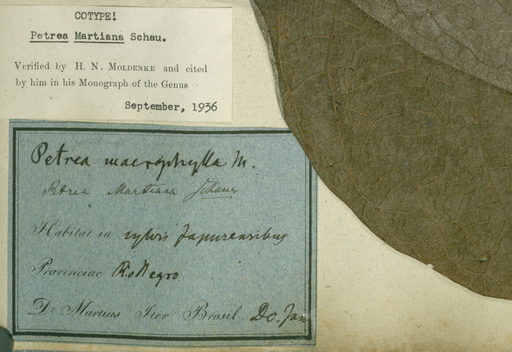 COTYPE!
Petrea Martiana Schau.
Verified by H. N. Moldenke and cited
by him in his Monograph of the Genus
September, 1936
Petrea macrophylla M.
Petrea Martiana Schauer
Habitat in sylvis Japurensibus
Provinciae Rio Negro
Dr Martius Iter Brasil. Dc. Jan